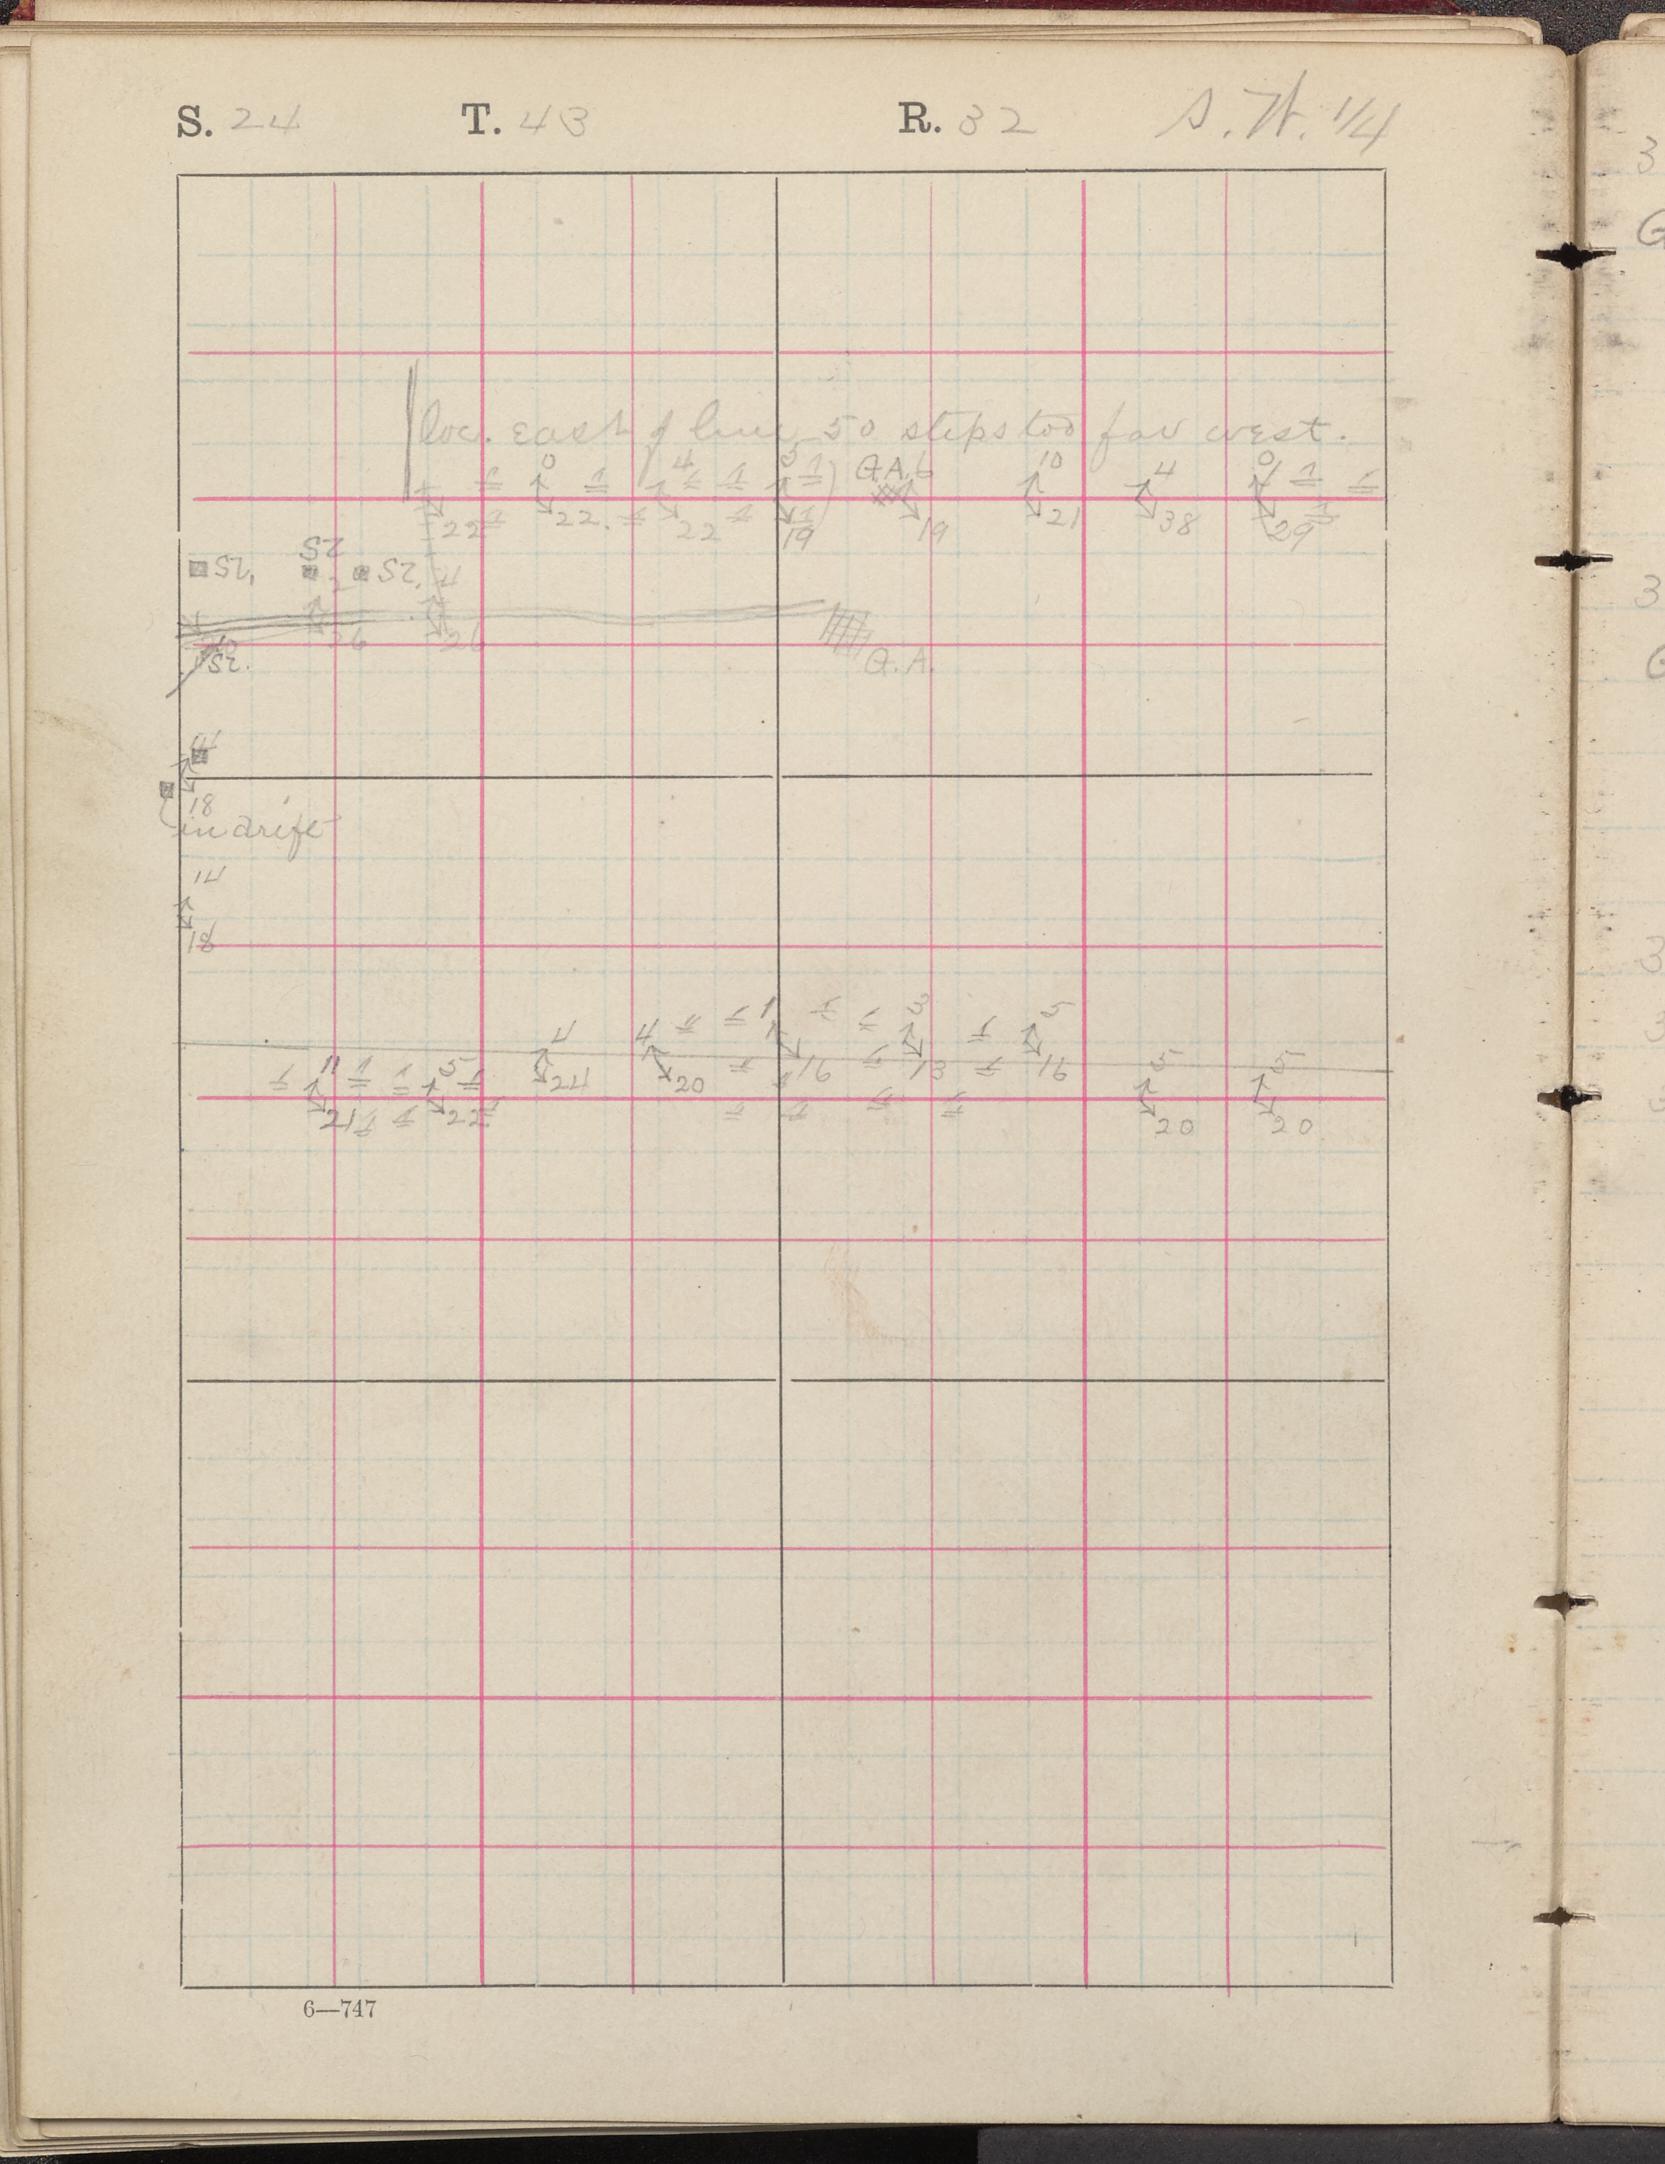 S. 24 T. 43 R. 32 S.W. 1/4
loc. east of line 50 steps too far west.
0 4 3 Q.A. 6 10 4 0
22 22. 22 19 19 21 38 29
SL, SL SL, 4
26 26
SL. Q.A.
14
18
in drift
14
18
4 4 1 3 5
11 5 24 20 16 13 16 5 5
21 22 20 20
6—747